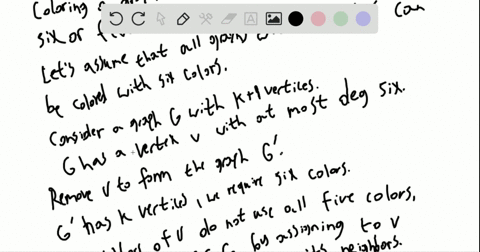 Coloring a
can
six or f
Let's assume that all graph
be colored with six colors.
Consider a graph G with k+1 vertices.
G has a vertex v with at most deg six.
Remove v to form the graph G'.
G' has k vertices, we require six colors.
of v do not use all five colors,
by assigning to v
neighbors.